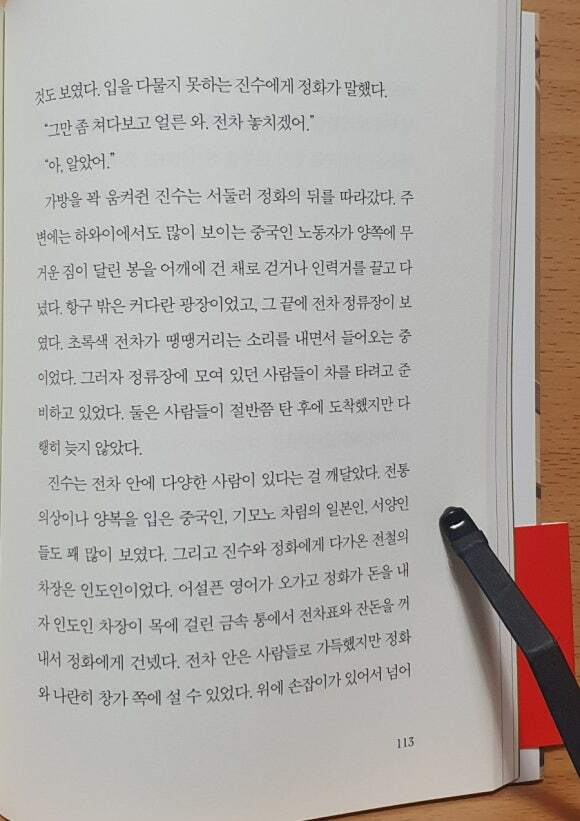 것도 보였다. 입을 다물지 못하는 진수에게 정화가 말했다.
“그만 좀 쳐다보고 얼른 와. 전차 놓치겠어.”
“아, 알았어.”
가방을 꽉 움켜쥔 진수는 서둘러 정화의 뒤를 따라갔다. 주
변에는 하와이에서도 많이 보이는 중국인 노동자가 양쪽에 무
거운 짐이 달린 봉을 어깨에 건 채로 걷거나 인력거를 끌고 다
녔다. 항구 밖은 커다란 광장이었고, 그 끝에 전차 정류장이 보
였다. 초록색 전차가 땡땡거리는 소리를 내면서 들어오는 중
이었다. 그러자 정류장에 모여 있던 사람들이 차를 타려고 준
비하고 있었다. 둘은 사람들이 절반쯤 탄 후에 도착했지만 다
행히 늦지 않았다.
진수는 전차 안에 다양한 사람이 있다는 걸 깨달았다. 전통
의상이나 양복을 입은 중국인, 기모노 차림의 일본인, 서양인
들도 꽤 많이 보였다. 그리고 진수와 정화에게 다가온 전철의
차장은 인도인이었다. 어설픈 영어가 오가고 정화가 돈을 내
자 인도인 차장이 목에 걸린 금속 통에서 전차표와 잔돈을 꺼
내서 정화에게 건넸다. 전차 안은 사람들로 가득했지만 정화
와 나란히 창가 쪽에 설 수 있었다. 위에 손잡이가 있어서 넘어
113